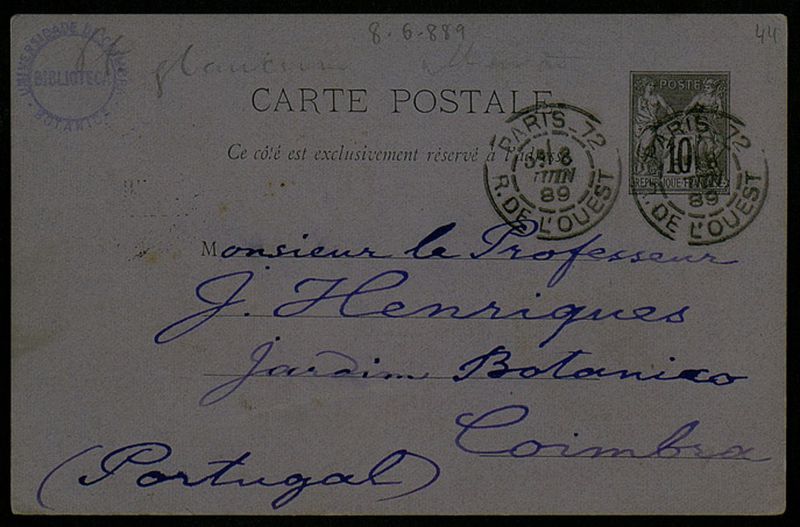 8-6-889
44
UNIVERSIDADE DE COIMBRA
BIBLIOTECA
BOTANICA
glaucum
CARTE POSTALE
Ce côté est exclusivement réservé à l'adresse
POSTE
10
REPUBLIQUE FRANÇAISE
PARIS_72
8
JUIN
89
R. DE L'OUEST
PARIS 72
89
R. DE L'OUEST
Monsieur le Professeur
J. Henriques
Jardim Botanico
Coimbra
(Portugal)